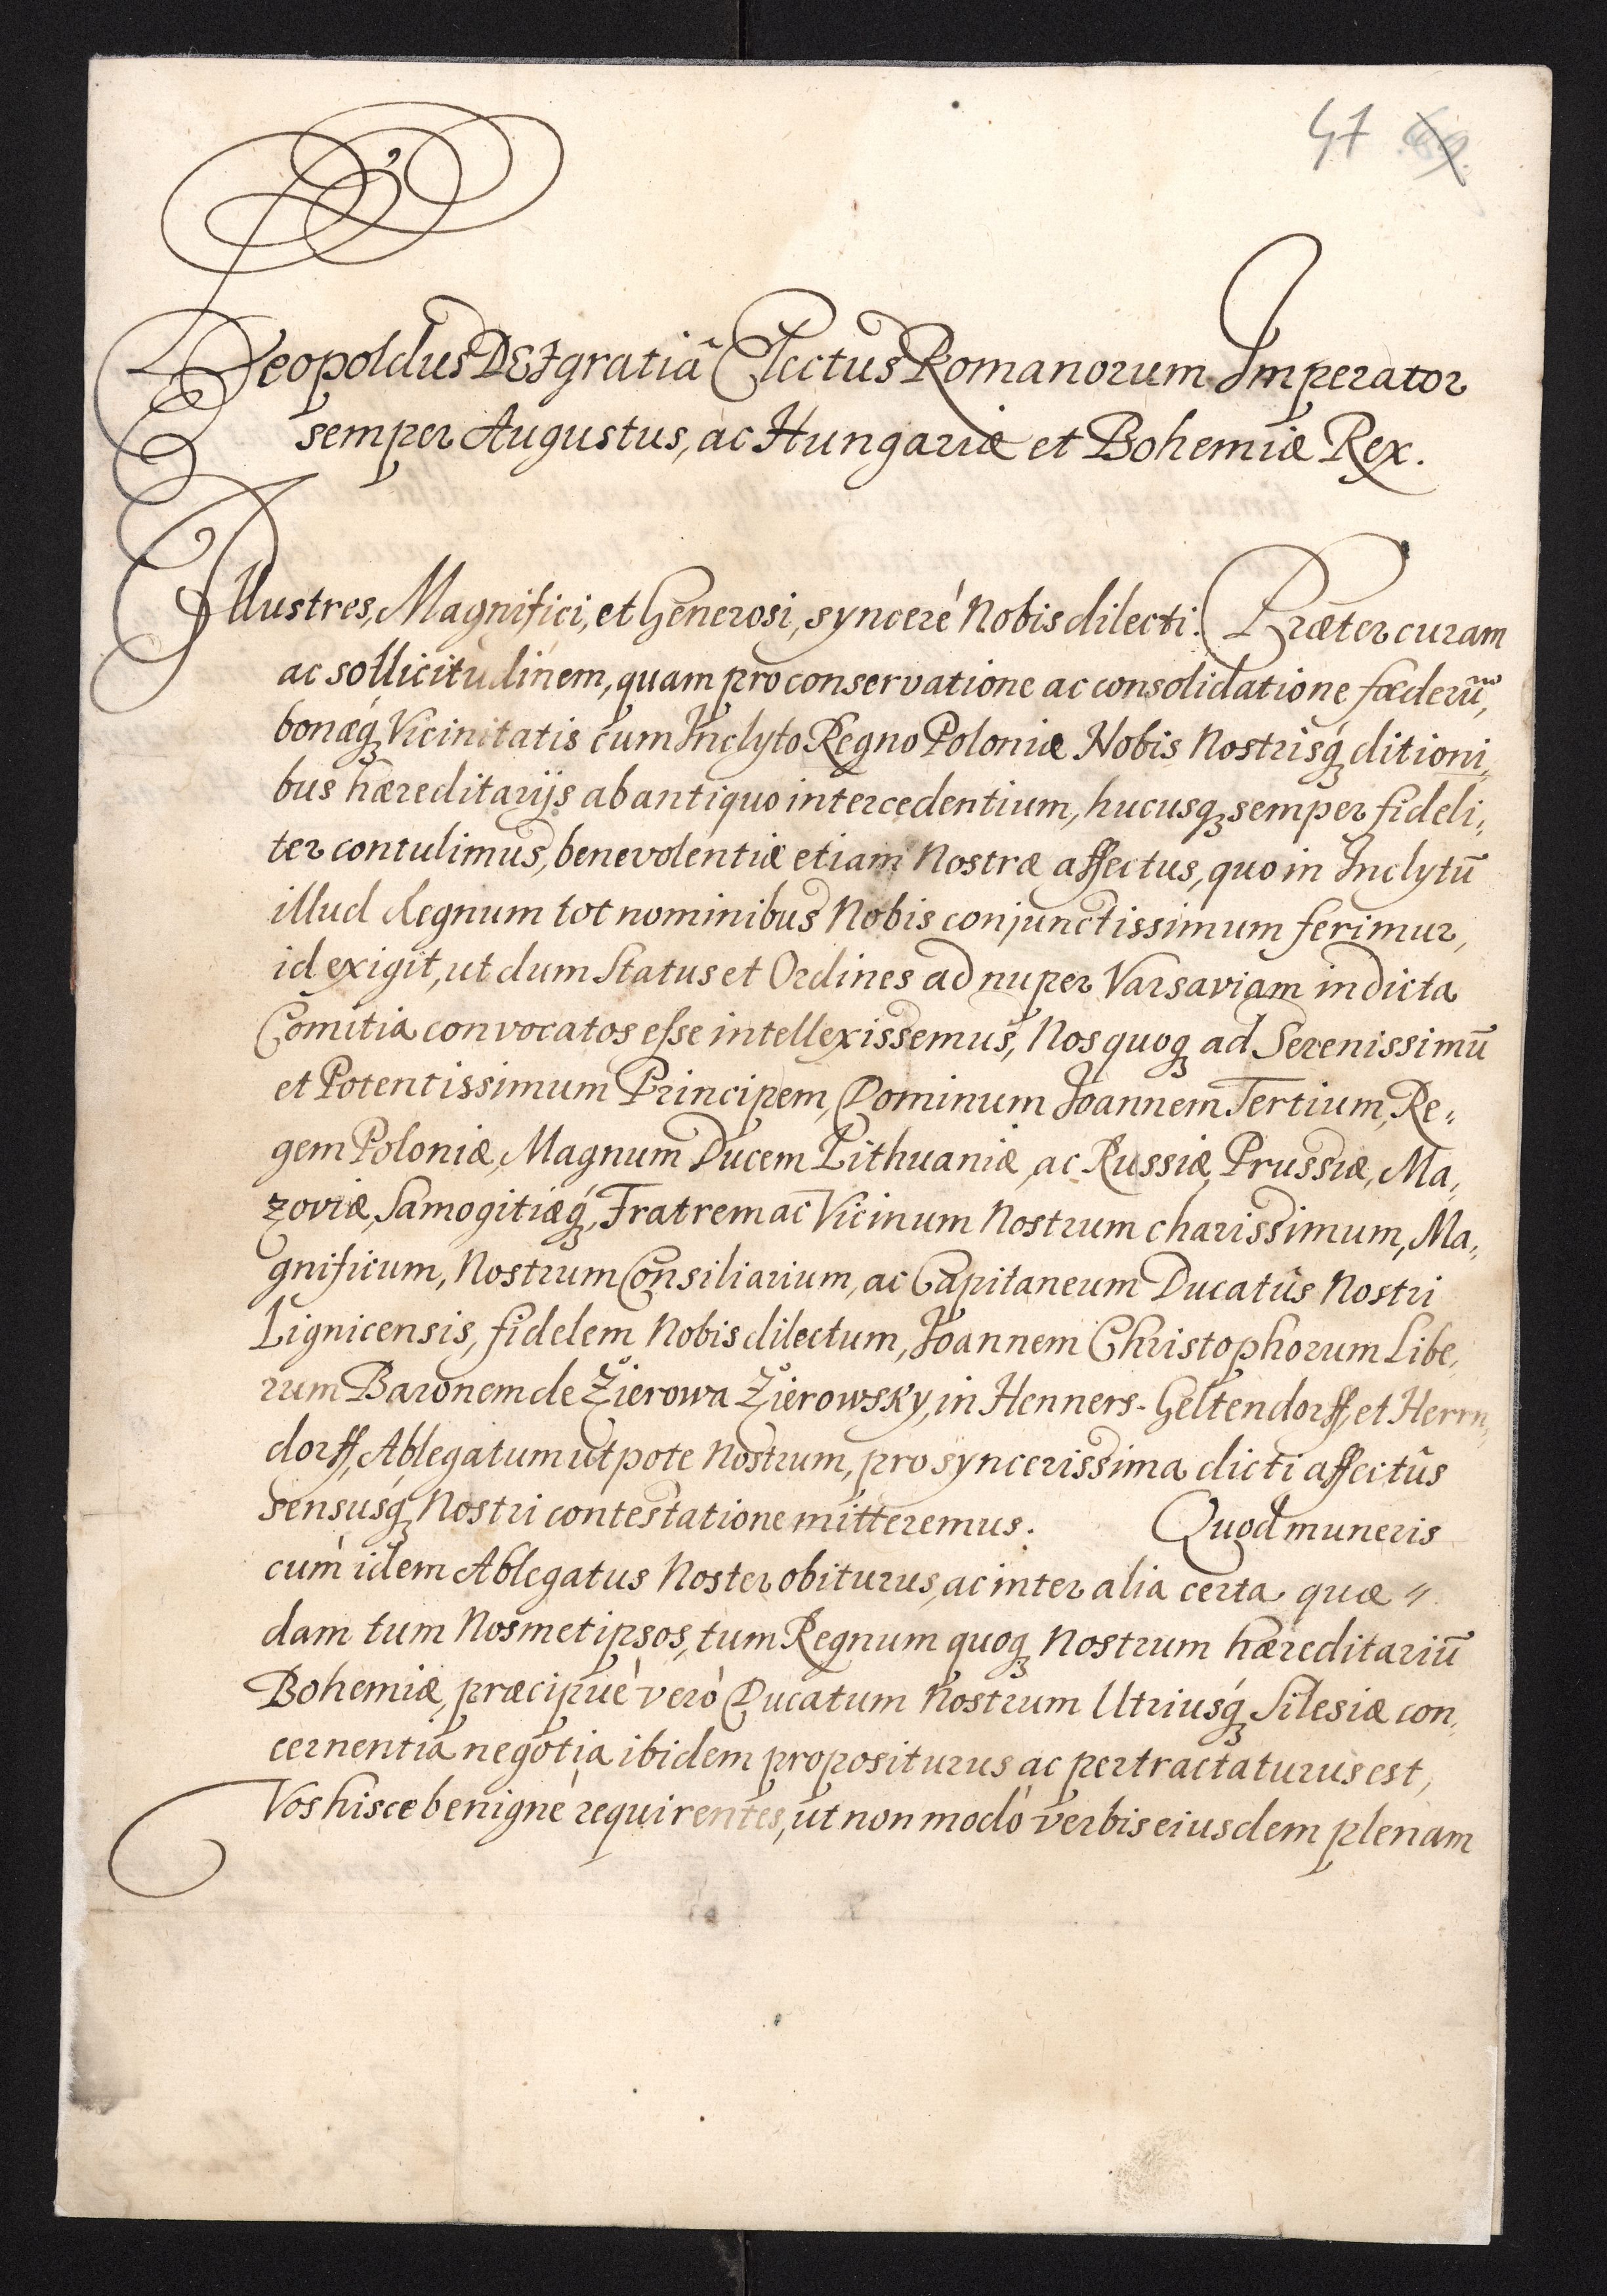 47
Leopoldus DEJ gratiâ Electus Romanorum Imperator
semper Augustus, ac Hungariæ et Bohemiæ Rex.
Illustres, Magnifici, et Generosi, syncerè Nobis dilecti. Præter curam
ac sollicitudinem, quam pro conservatione ac consolidatione fœderū,
bonæq́ꝫ Vicinitatis cum Inclyto Regno Poloniæ Nobis Nostrisq́ꝫ ditioni„
bus hæreditarijs ab antiquo intercedentium, hucusqꝫ semper fideli„
ter contulimus, benevolentiæ etiam Nostræ affectus, quo in Inclytū
illud Regnum tot nominibus Nobis conjunctissimum ferimur,
id exigit, ut dum Status et Ordines ad nuper Varsaviam indicta
Comitia convocatos esse intellexissemus, Nos quoqꝫ ad Serenissimū
et Potentissimum Principem, Dominum Joannem Tertium, Re„
gem Poloniæ, Magnum Ducem Lithuaniæ, ac Russiæ, Prussiæ, Ma„
zoviæ, Samogitiæq́ꝫ, Fratrem ac Vicinum Nostrum charissimum, Ma„
gnificum, Nostrum Consiliarium, ac Capitaneum Ducatûs Nostri
Lignicensis, fidelem Nobis dilectum, Joannem Christophorum Libe„
rum Baronem de Zierowa Zierowsky, in Henners-Geltendorff, et Herrn„
dorff, Ablegatum utpote Nostrum, pro syncerissima dicti affectûs
sensusq́ꝫ Nostri contestatione mitteremus. Quod muneris
cùm idem Ablegatus Noster obiturus, ac inter alia certa quæ„
dam tum Nosmetipsos, tum Regnum quoqꝫ Nostrum hæreditariū
Bohemiæ, præcipuè verò Ducatum Nostrum Utriusq́ꝫ Silesiæ con„
cernentia negotia ibidem propositurus ac pertractaturus est,
Vos hisce benignè requirentes, ut non modò verbis eiusdem plenam